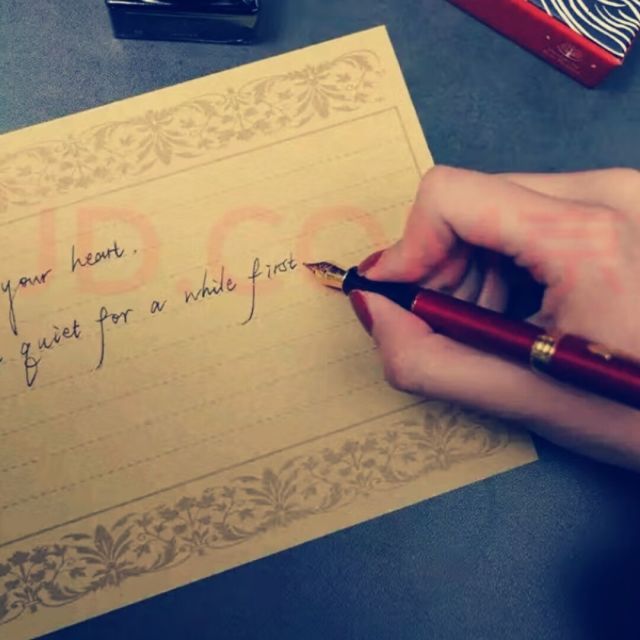 JD.CO
your heart.
quiet for a while first